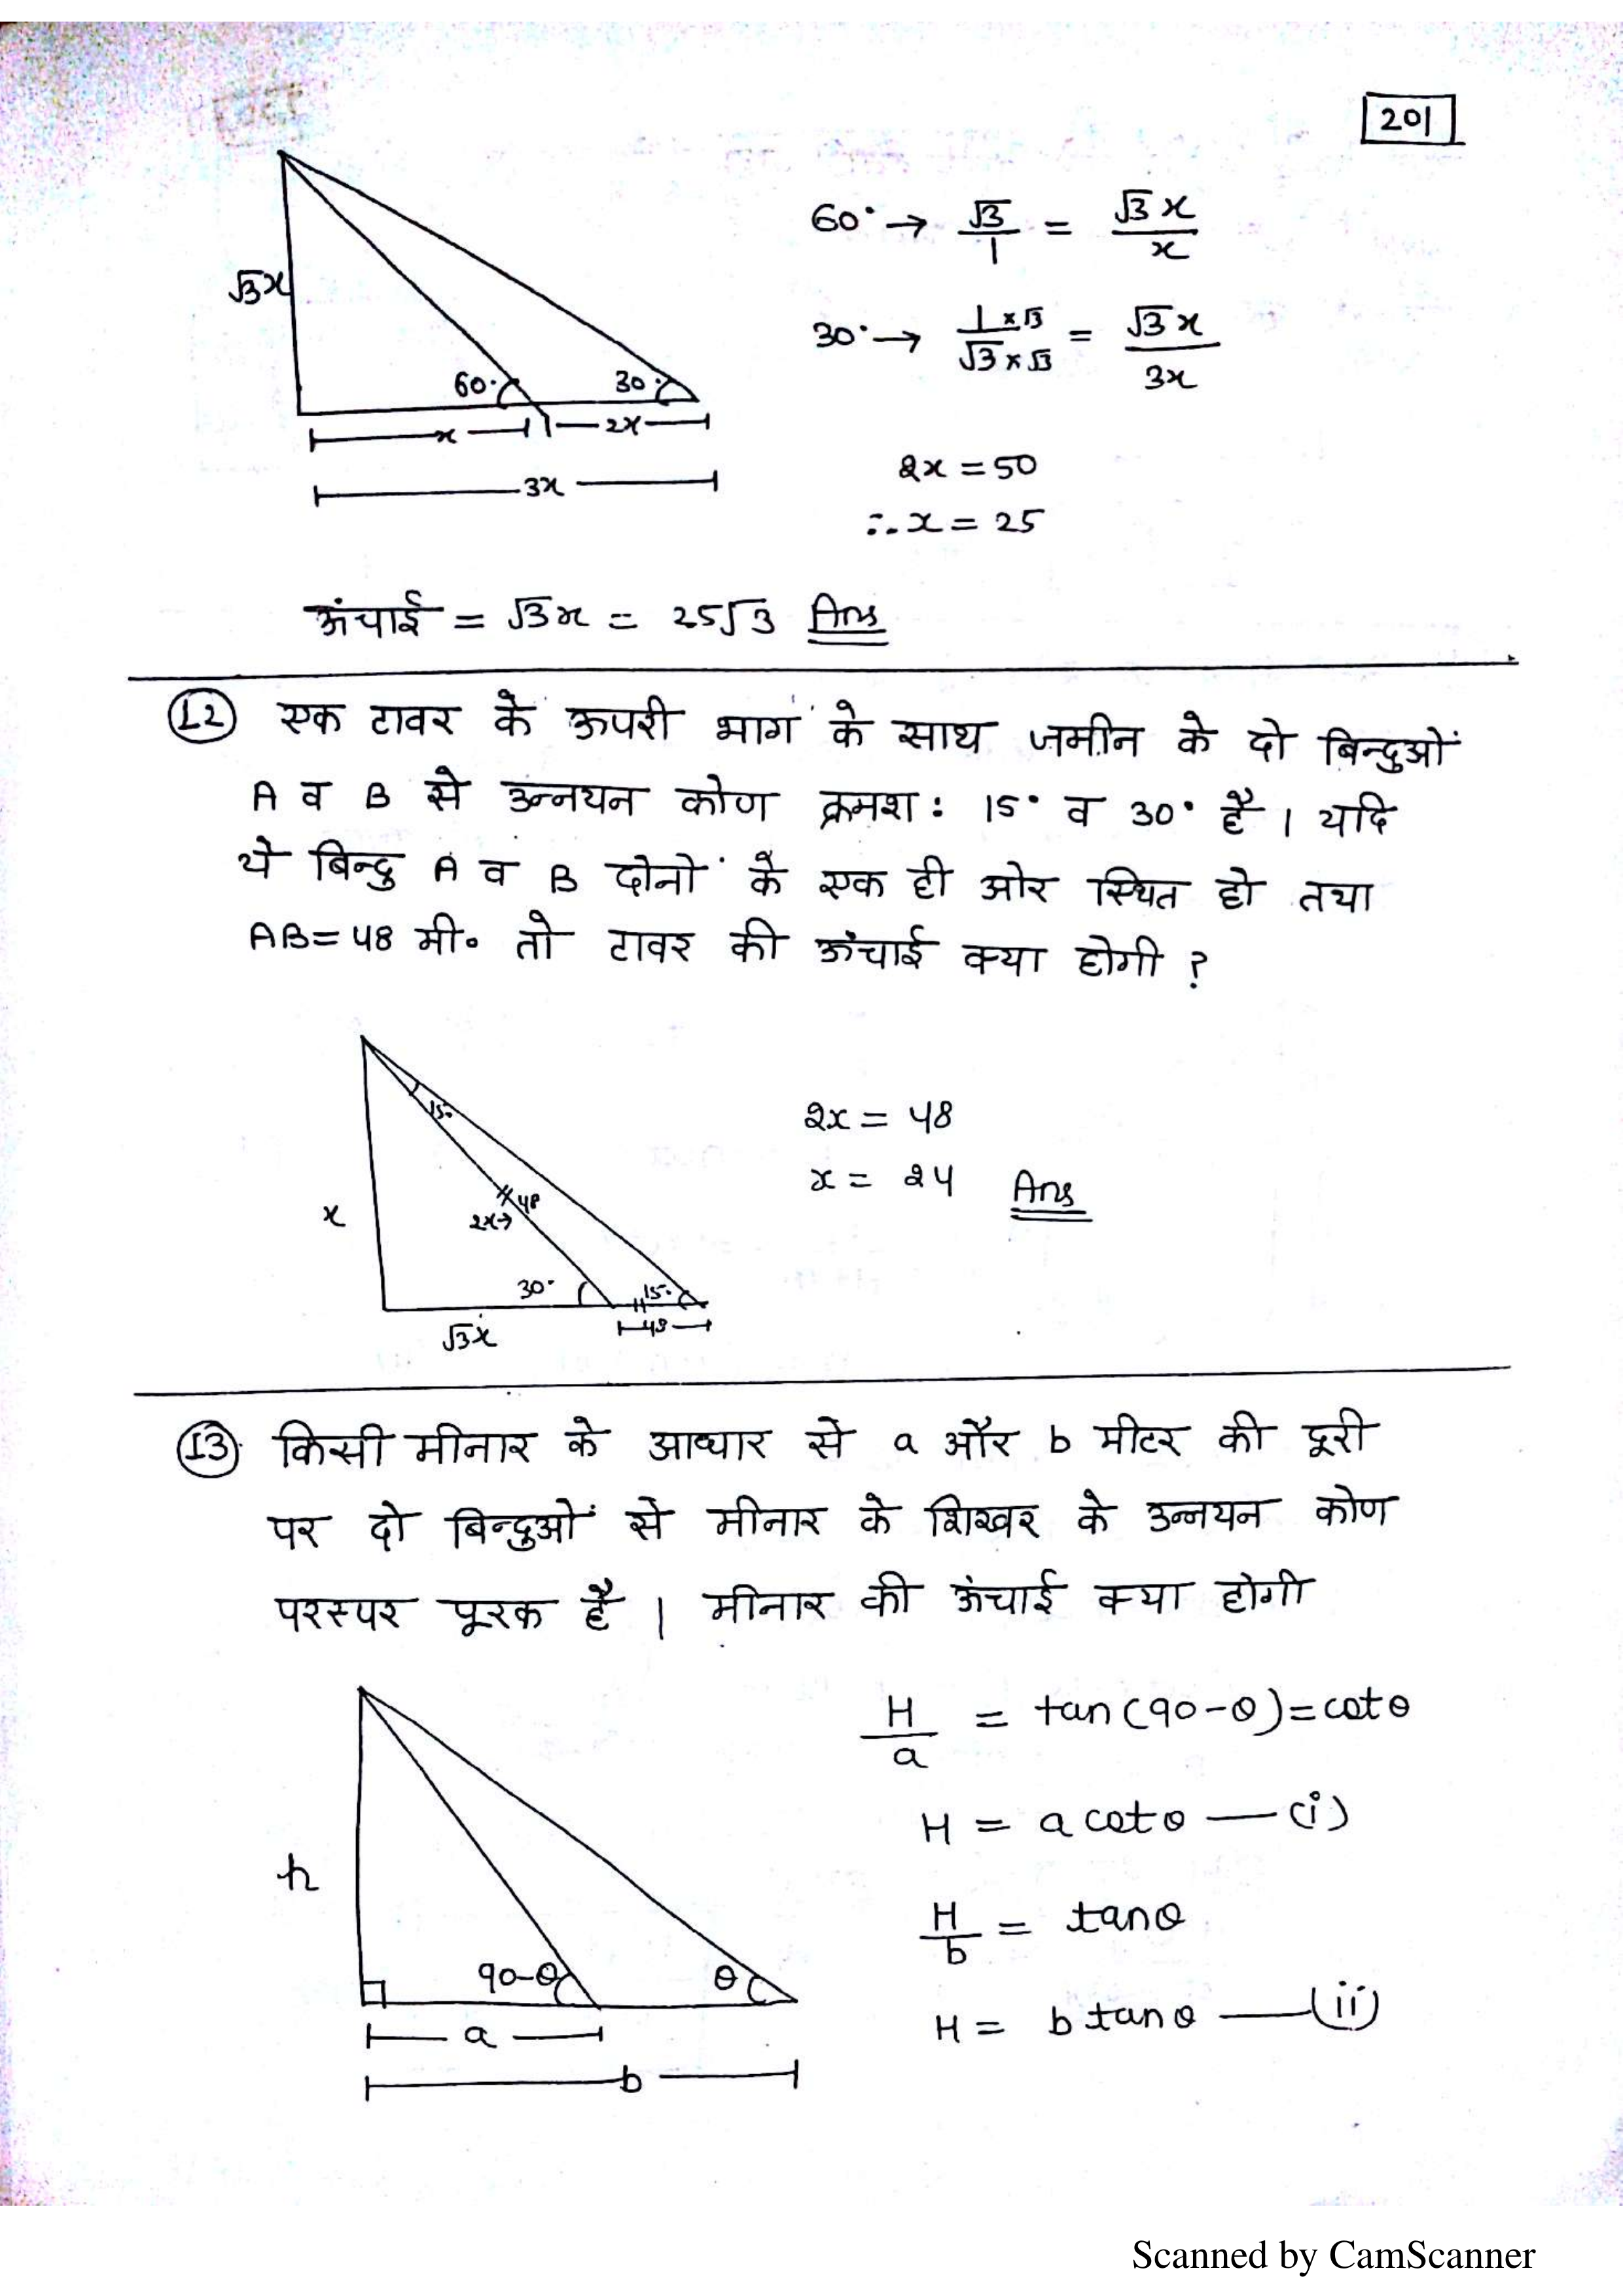 201
60° → √3/1 = √3x/x
√3x
30° → 1×√3/√3×√3 = √3x/3x
60° 30°
x 2x
3x
2x = 50
∴ x = 25
ऊंचाई = √3x = 25√3 Ans
(12) एक टावर के ऊपरी भाग के साथ जमीन के दो बिन्दुओं
A व B से उन्नयन कोण क्रमश: 15° व 30° है । यदि
ये बिन्दु A व B दोनों के एक ही ओर स्थित हो तथा
AB = 48 मी० तो टावर की ऊंचाई क्या होगी ?
15°
2x = 48
x = 24 Ans
x
48
2x→
30° 15°
√3x 48
(13) किसी मीनार के आधार से a और b मीटर की दूरी
पर दो बिन्दुओं से मीनार के शिखर के उन्नयन कोण
परस्पर पूरक है । मीनार की ऊंचाई क्या होगी
H/a = tan(90-θ) = cotθ
H = a cotθ — (i)
h
H/b = tanθ
90-θ θ
H = b tanθ — (ii)
a
b
Scanned by CamScanner